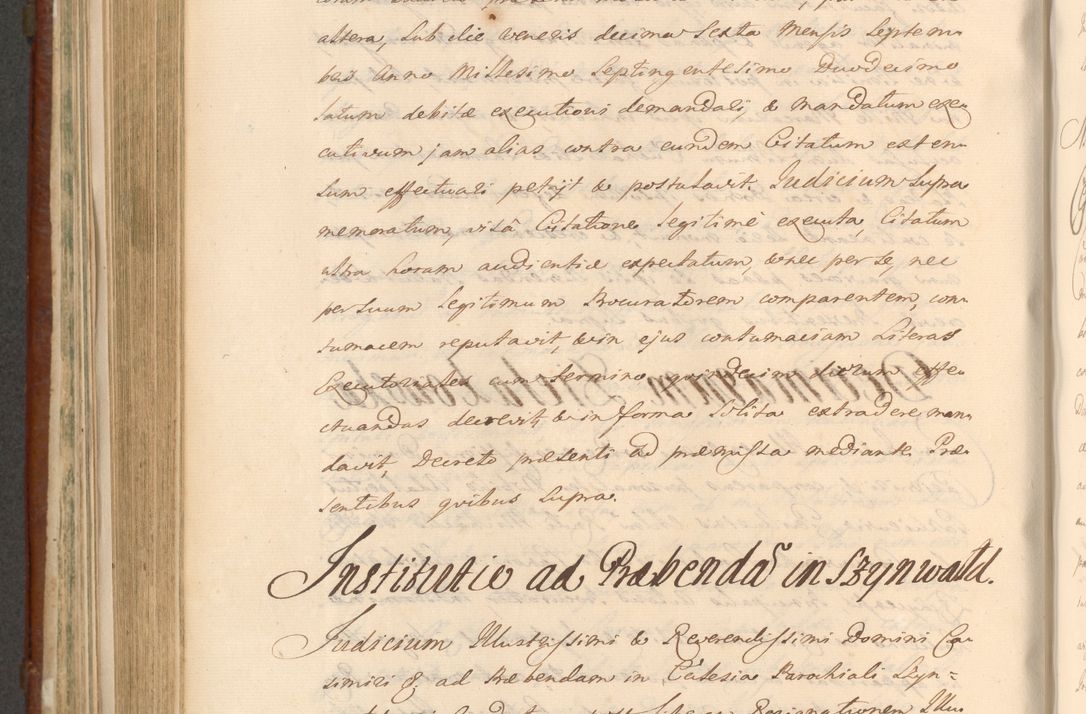 altera, sub die Veneris decima Sexta Mensis Septem
bris Anno Millesimo Septingentesimo Duodecimo
latum debitæ executioni demandari, & mandatum exe
cutivum jam alias contra eundem Citatum exten
sum effectuari petijt & postulavit. Judicium supra
memoratum, visâ Citatione legitimè executa, Citatum
ultra horam audientiæ expectatum, & nec per se, nec
per suum legitimum Procuratorem comparentem, con
tumacem reputavit, & in ejus contumaciam Literas
Executoriales cum termino quindecim dierum effe
ctuandas decrevit, & in forma solita extradere man
davit, Decreto præsenti ad præmissa mediante. Præ
sentibus quibus supra.
Institutio ad Præbenda in Szynwald.
Judicium Illustrissimi & Reverendissimi Domini Ca
simiri & ad Præbendam in Ecclesia Parochiali Szyn=
Resignationem Illu